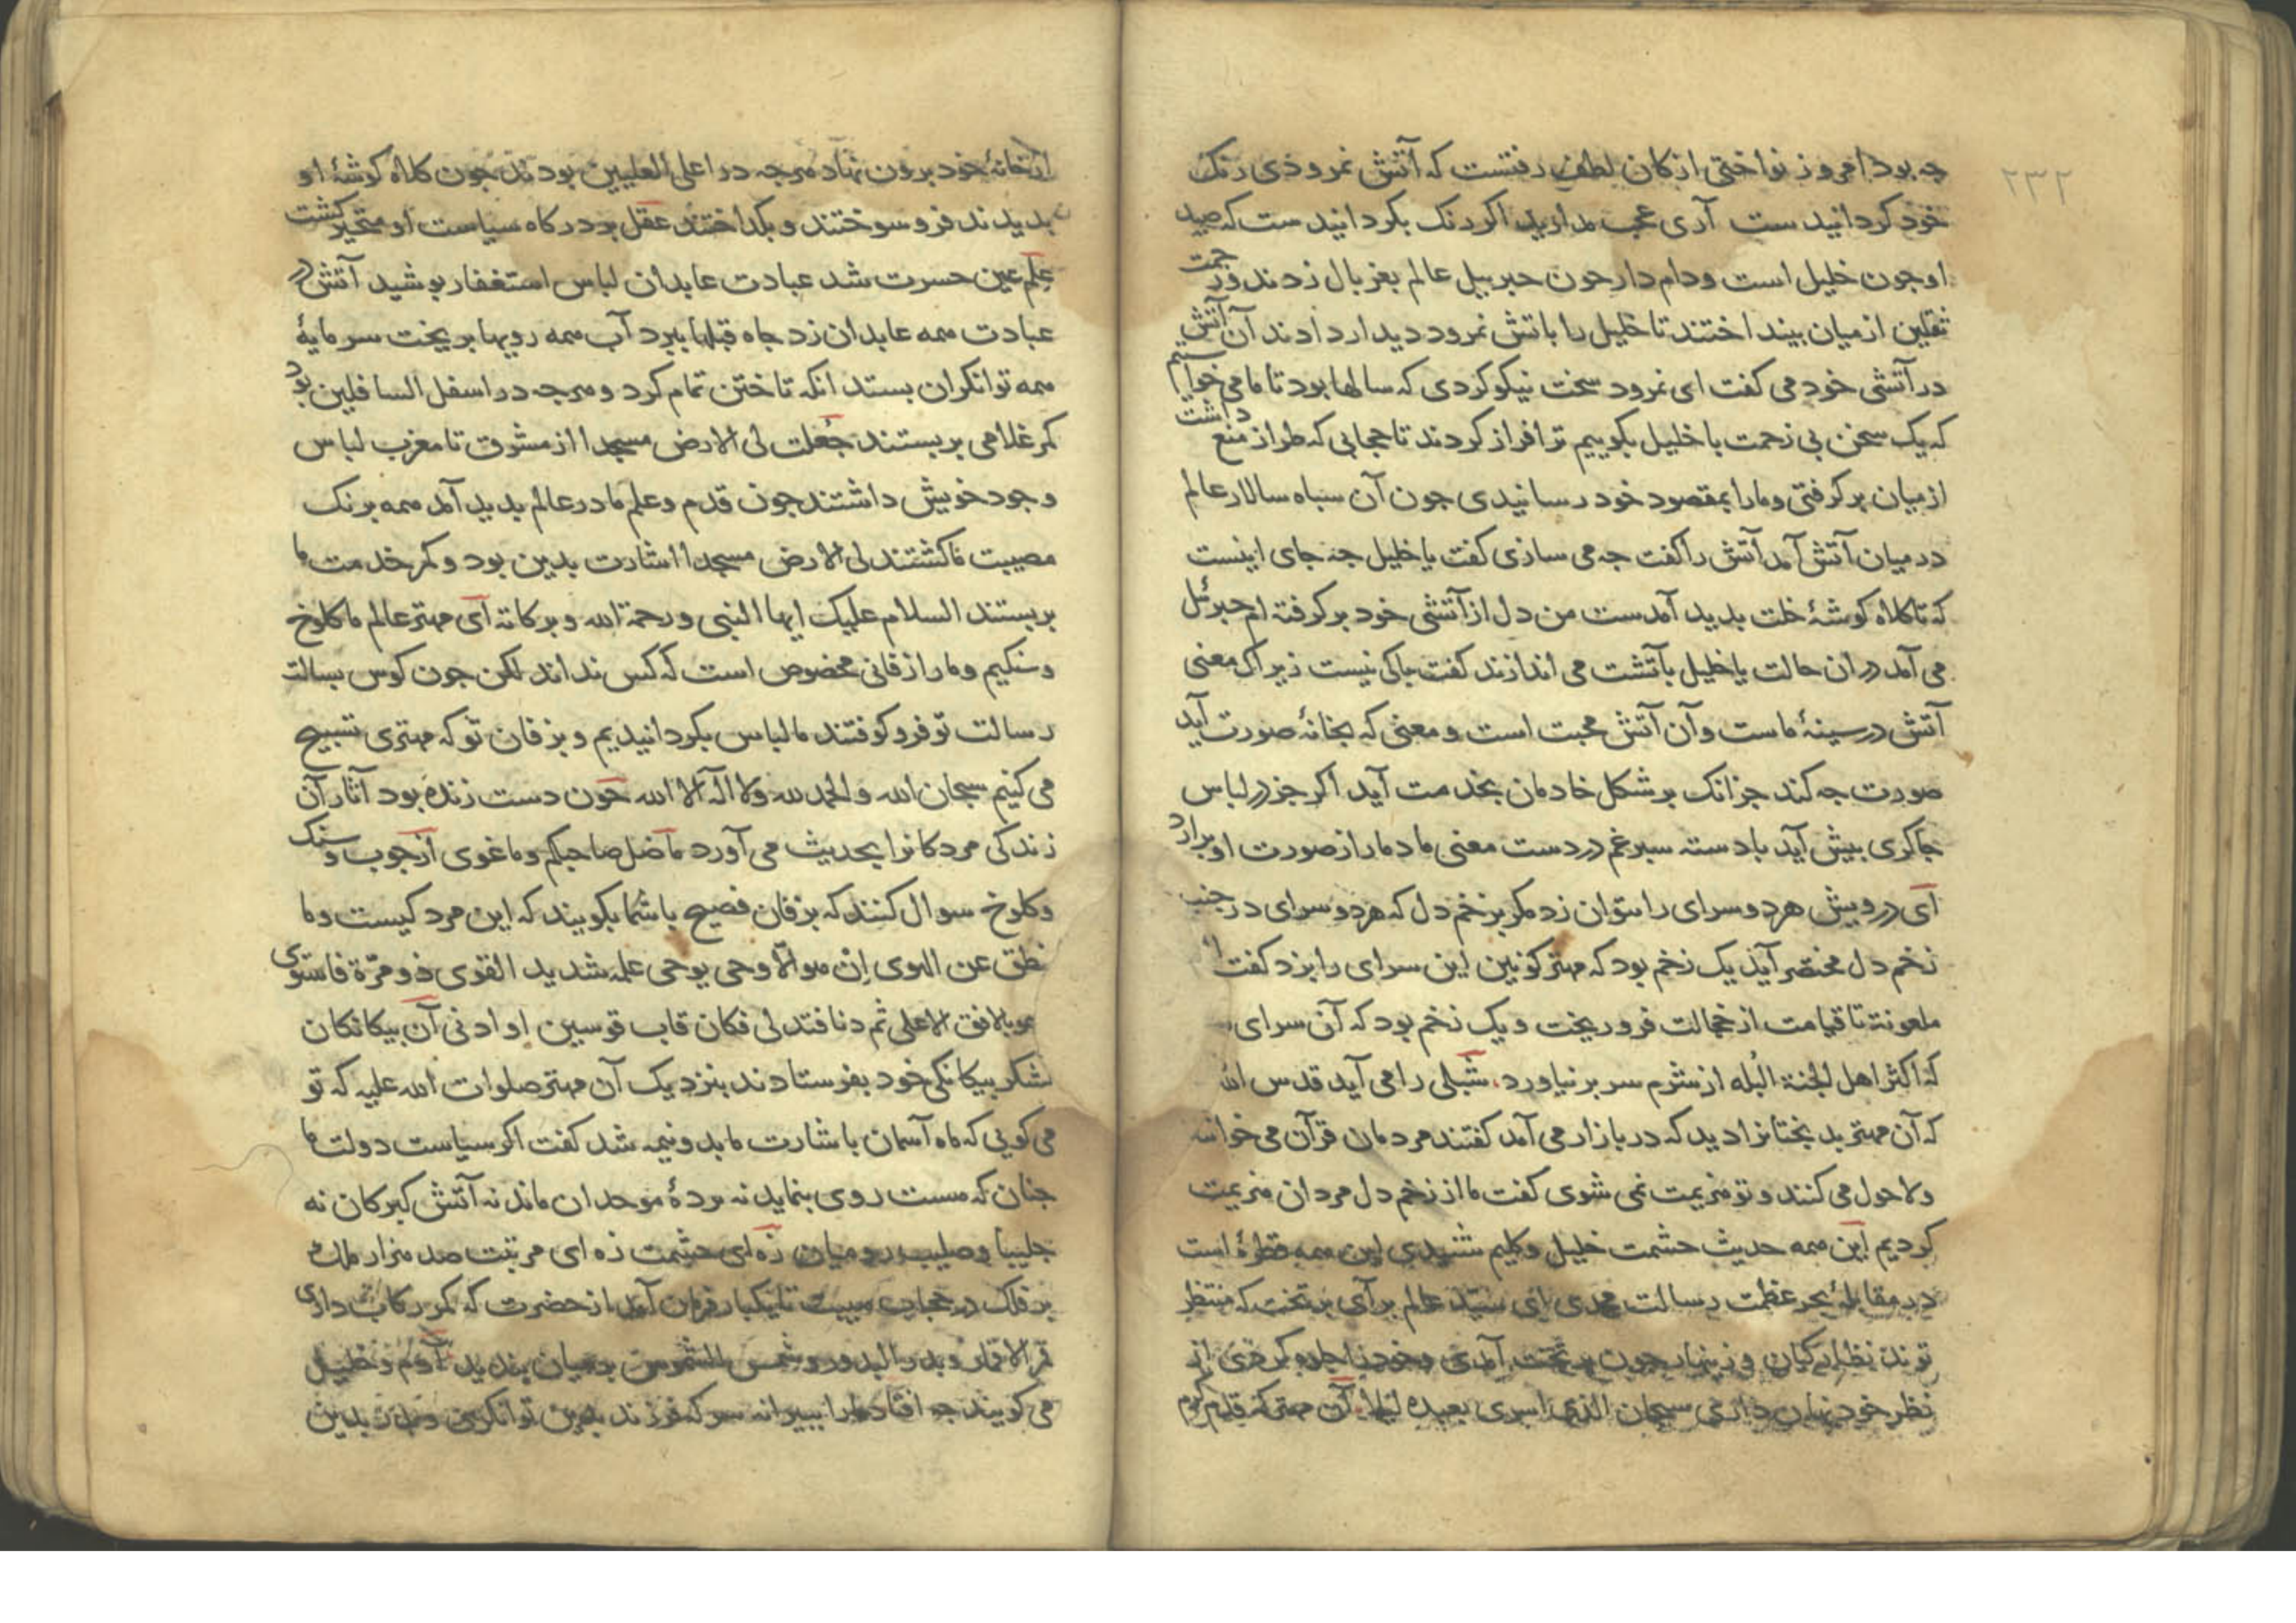 ۲۳۲
جه بود امروز نواختی از کان لطف رفتست که آتش نمروذی رنک
خود کردانیدست آری عجب مدارید اکر رنک بکردانیدست که صید
او جون خلیل است و دام دار جون جبریل عالم بغربال زدند و زحمت
ثقلین از میان بینداختند تا خلیل را باتش نمرود دیدار دادند آن آتش
در آتشی خود می کفت ای نمرود سخت نیکو کردی که سالها بود تا ما می خواستیم
که یک سخن بی زحمت با خلیل بکوییم ترا فراز کردند تا حجابی که طراز منع داشت
از میان برکرفتی و ما را بمقصود خود رسانیدی جون آن سباه سالار عالم
در میان آتش آمد آتش را کفت جه می سازی کفت یا خلیل جه جای اینست
که تا کلاه کوشۀ خلت بدید آمدست من دل از آتشی خود برکرفته ام جبرئل
می آمد در ان حالت یا خلیل بآتشت می اندازند کفت باکی نیست زیراک معنی
آتش در سینۀ ماست و آن آتش محبت است و معنی که بخانۀ صورت آید
صورت جه کند جز انک بر شکل خادمان بخدمت آید اکر جز در لباس
جاکری بیش آید با دسته سبرغم در دست معنی ما دمار از صورت او برارد
ای درویش هر دو سرای را بتوان زد مکر بزخم دل که هر دو سرای در جنب
زخم دل مختصر آید یک زخم بود که مهتر کونین این سرای را بزد کفت
ملعونة تا قیامت از خجالت فرو ریخت و یک زخم بود که آن سرای
که اکثر اهل الجنة البُله از شرم سر بر نیاورد شبلی را می آید قدس الله
که آن مهتر بدبختانرا دید که در بازار می آمد کفتند مردمان قرآن می خوانند
ولا حول می کنند و تو هزیمت نمی شوی کفت ما از زخم دل مردان هزیمت
کردیم این همه حدیث حشمت خلیل و کلیم شنیدی این همه قطرۀ است
در مقابلۀ بحر عظمت رسالت محمدی ای سید عالم برآی بر تخت که منتظر
توند نظارکیان و زینهار جون بر تخت آمدی و خود را جلوه کردی از
نظر خود نهان داری سبحان الذی اسری بعبده لیلا آن مهتر که قدم کرم
از خانۀ خود برون نهاد هرجه در اعلی العلیین بودند جون کلاه کوشۀ او
بدیدند فرو سوختند و بکداختند عقل بر درکاه سیاست او متحیر کشت
علم عین حسرت شد عبادت عابدان لباس استغفار بوشید آتش در
عبادت همه عابدان زد جاه قبلها ببرد آب همه رویها بریخت سرمایۀ
همه توانکران بستد انکه تاختن تمام کرد و هرجه در اسفل السافلین بود
کمر غلامی بر بستند جُعلت لی الارض مسجدا از مشرق تا مغرب لباس
وجود خویش داشتند جون قدم و علم ما در عالم بدید آمد همه برنک
مصیبت ما کشتند لی الارض مسجدا اشارت بدین بود و کمر خدمت ما
بر بستند السلام علیک ایها النبی ورحمة الله وبرکاته ای مهتر عالم ما کلوخ
و سنکیم و ما را زفانی مخصوص است که کس نداند لکن جون کوس بسالت
رسالت تو فرو کوفتند ما لباس بکردانیدیم و بزفان تو که مهتری تسبیح
می کنیم سبحان الله والحمد لله ولا اله الا الله جون دست زنده بود آثار آن
زندکی مردکانرا بحدیث می آورد ما ضل صاحبکم وما غوی از جوب و سنک
و کلوخ سوال کنند که بزفان فصیح با شما بکویند که این مرد کیست وما
ینطق عن الهوی اِنْ هو الّا وحی یوحی علمه شدید القوی ذو مرّة فاستوی
وهو بالافق الاعلی ثم دنا فتدلی فکان قاب قوسین او ادنی آن بیکانکان
لشکر بیکانکی خود بفرستادند بنزدیک آن مهتر صلوات الله علیه که تو
می کویی که ماه آسمان باشارت ما بدو نیمه شد کفت اکر سیاست دولت ما
جنان که هست روی بنماید نه بردۀ موحدان ماند نه آتش کبرکان نه
جلیبا و صلیب رومیان زه ای حشمت زه ای مرتبت صد هزار ملک
بر فلک در حجاب هیبت تا یکبار فرمان آمد از حضرت که کمر رکاب داری
قمر الاقمار و بدر البدور و شمس الشموس بر میان بندید آدم و خلیل
می کویند جه افتاد ما را بیرانه سر که فرزند بدین توانکری و بدر بدین